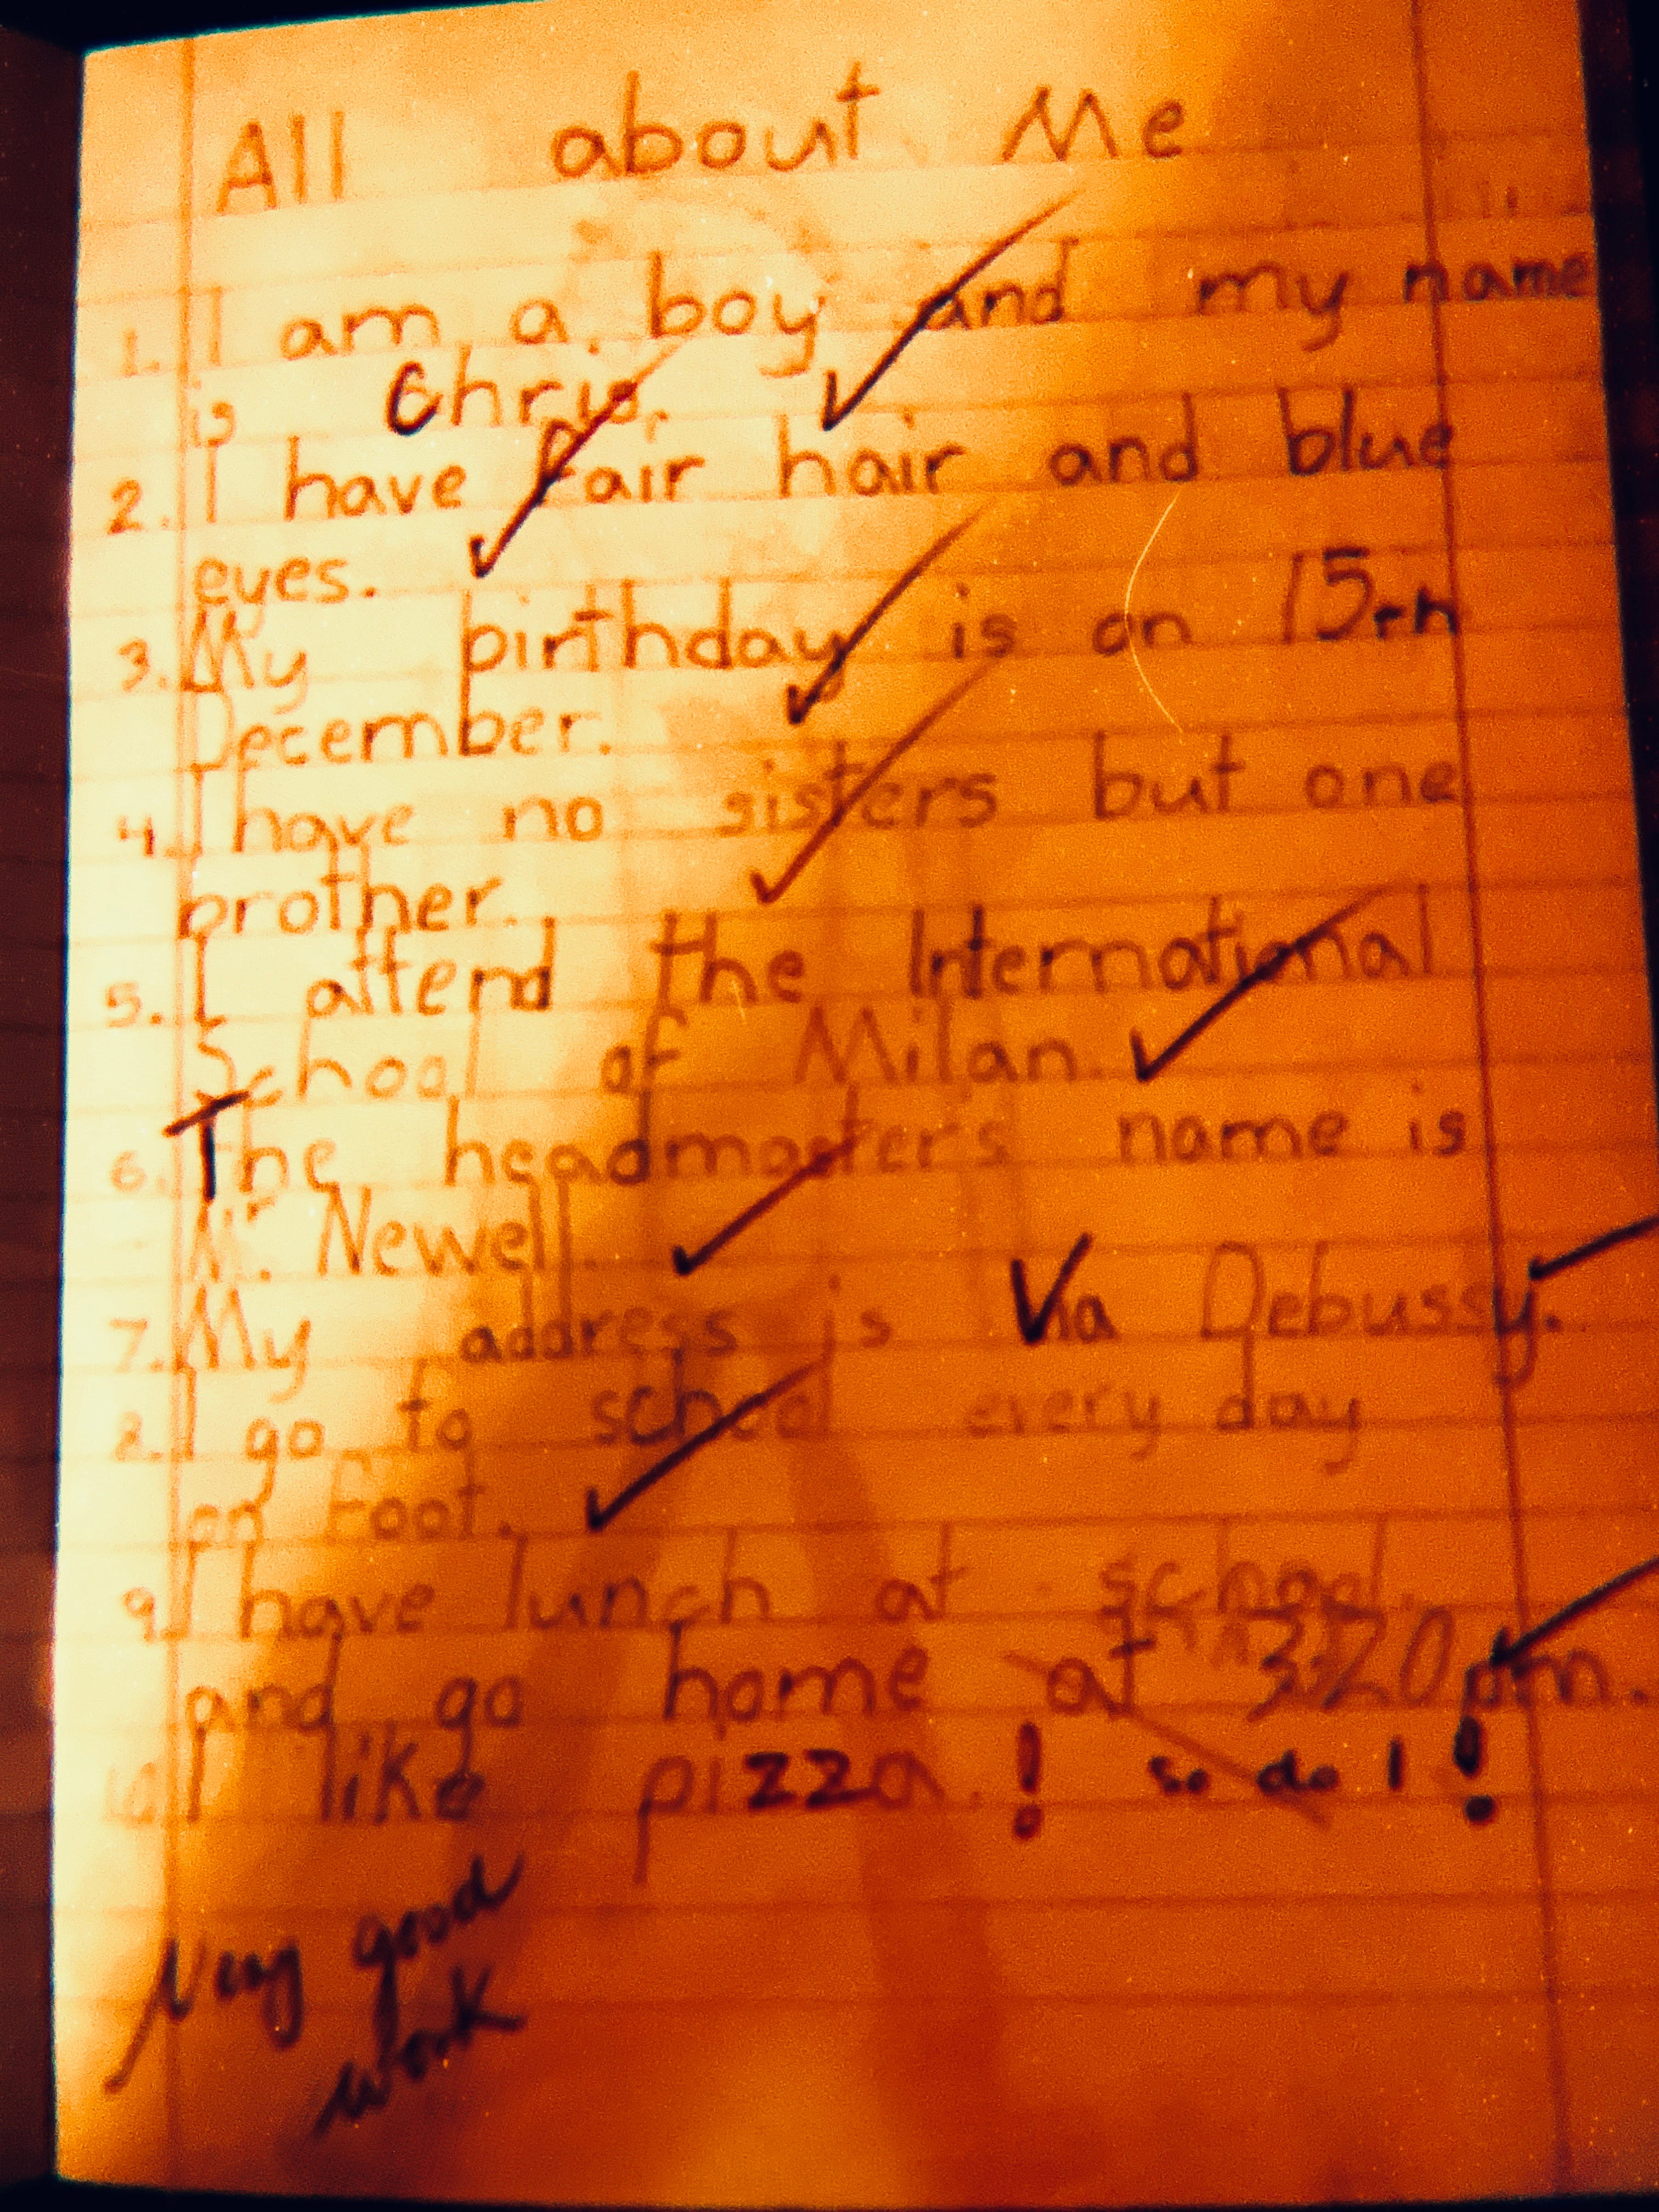 All about Me
1. I am a boy and my name
is Chris.
2. I have fair hair and blue
eyes.
3. My birthday is on 15th
December.
4. I have no sisters but one
brother.
5. I attend the International
School of Milan.
6. The headmasters name is
Mr. Newell.
7. My address is Via Debussy.
8. I go to school every day
on foot.
9. I have lunch at school.
and go home at 3:20 pm.
10. I like pizza.! so do I!
Very good
work